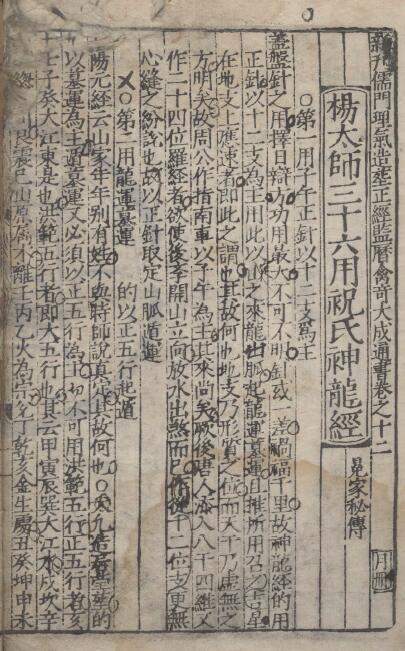 新刊儒門理氣造葬正經監曆禽奇大成通書卷之十二
楊太師三十六用祝氏神龍經
晃家秘傳
月冊
○第一用子午正針以十二支為主
蓋盤針之用擇日辯方功用最大不可不明針或差禍福千里故神龍經的用
正針以十二支為主用此以之來龍山脈起龍運墓運且推所用召之吉星
在地支上應速者即此之謂也其故何也地支乃形質之位而天干乃虛無之
方明矣故周公作指南車以子午為其來尚矣厥後唐人添入八干四維又
作二十四位羅經者欲使後李開山立向放水出煞而已作從十二位支更無
心縫之紛說也故以正針取定山脈遁運
○第二用龍運墓運 的以正五行起遁
陽元經云山家年年別有姓不與時師說真其故何也○矣凡造葬的
以墓運為主遁墓運又必須以正五行為主切不可用洪範五行正五行者亥
子癸大江東是也洪範五行者即大五行也其云甲寅辰巽大江水戌坎辛
艮震巳山原屬木離壬丙乙火為宗兌丁乾亥金生處丑癸坤申未